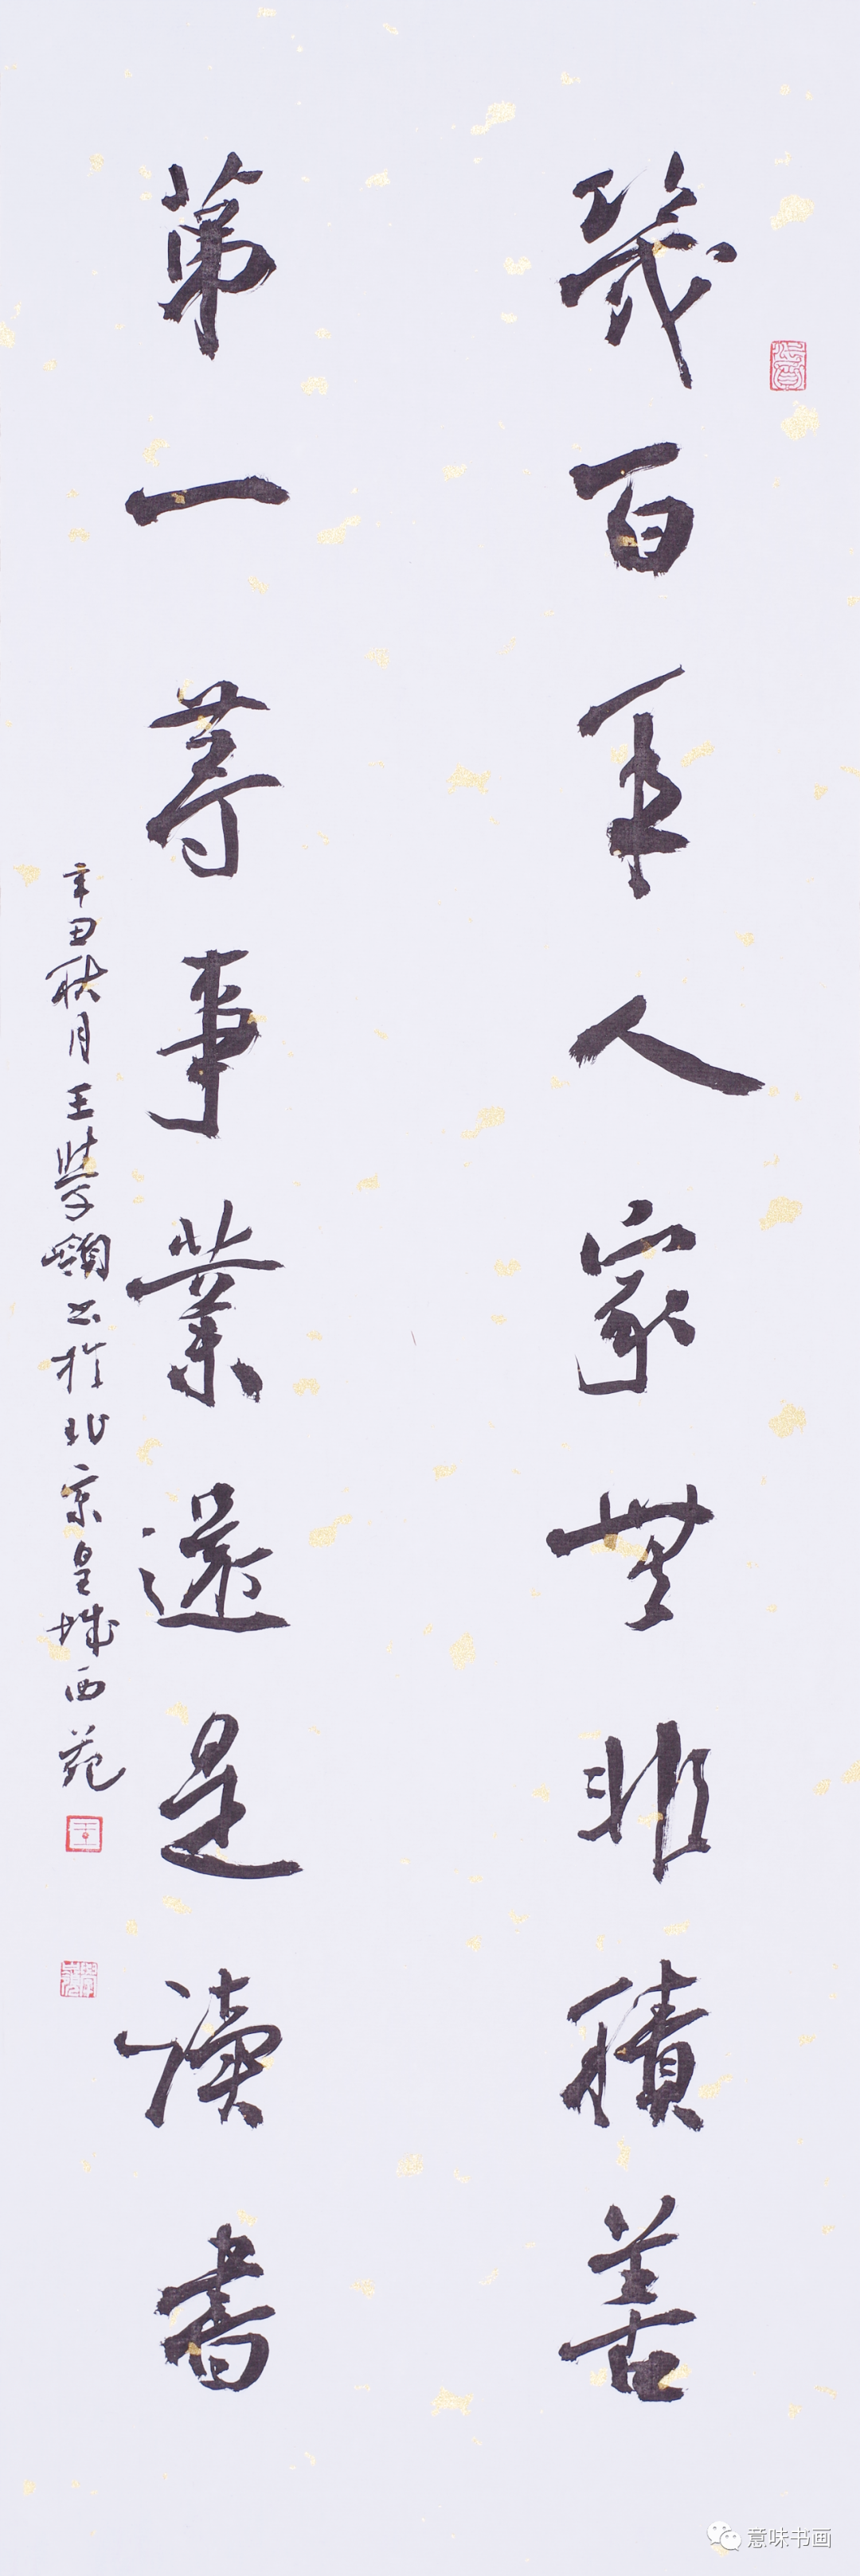 几百年人家無非積善
第一等事業還是讀書
辛丑秋月王學嶺書於北京皇城西苑
王
學嶺
意味书画